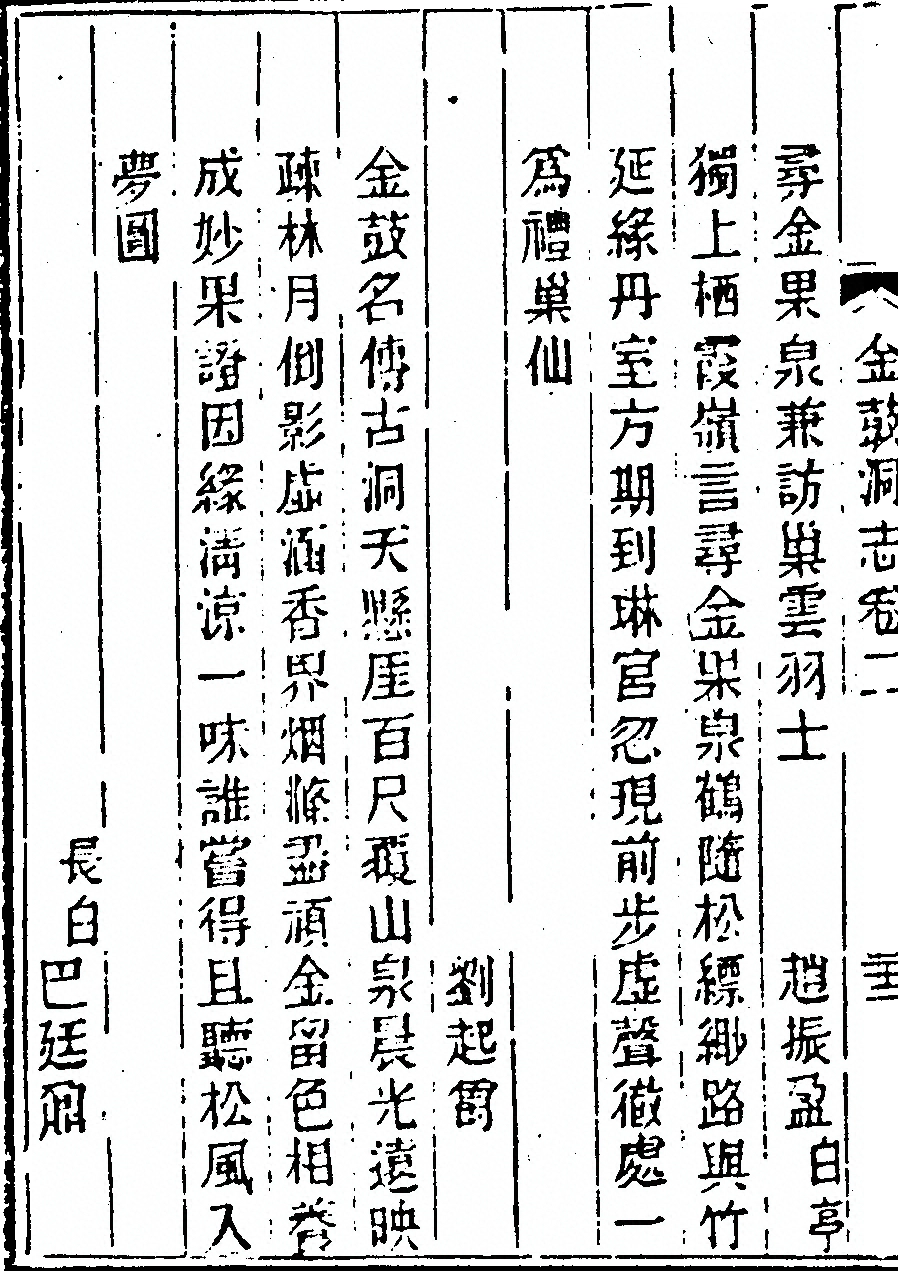 金鼓洞志卷一
尋金果泉兼訪巢雲羽士 趙振盈 白亭
獨上栖霞嶺言尋金果泉鶴隨松縹緲路與竹
延緣丹室方期到琳宮忽現前步虛聲徹處一
為禮巢仙
劉起
金鼓名傳古洞天懸厓百尺覆山泉晨光遠映
疎林月倒影虛涵香界烟滌盡頑金留色相養
成妙果證因緣清涼一味誰嘗得且聽松風入
夢圓
長白
巴廷